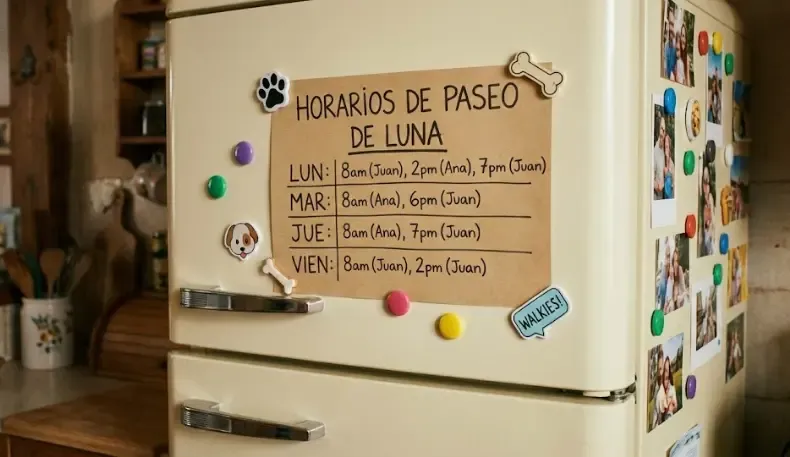 HORARIOS DE PASEO
DE LUNA
LUN: 8am (Juan), 2pm (Ana), 7pm (Juan)
MAR: 8am (Ana), 6pm (Juan)
JUE: 8am (Ana), 7pm (Juan)
VIEN: 8am (Juan), 2pm (Juan)
WALKIES!